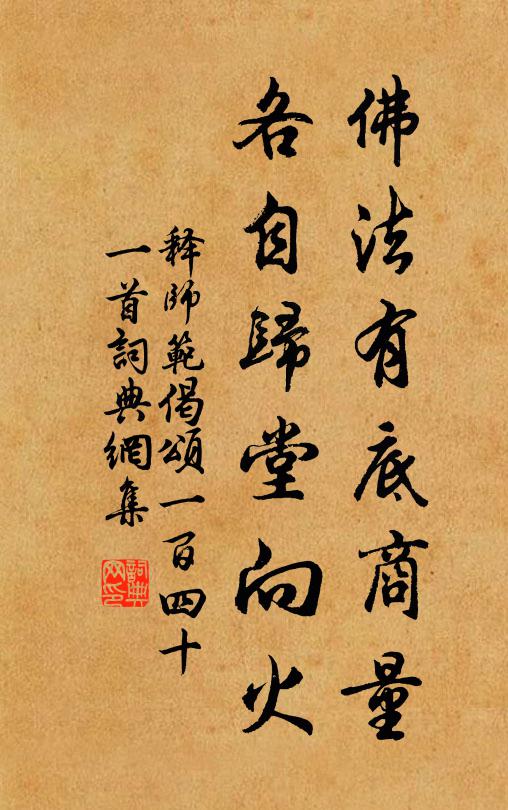 佛法有底商量
各自歸堂向火
释師範偈頌一百四十
一首詞典網集
詞典
网印